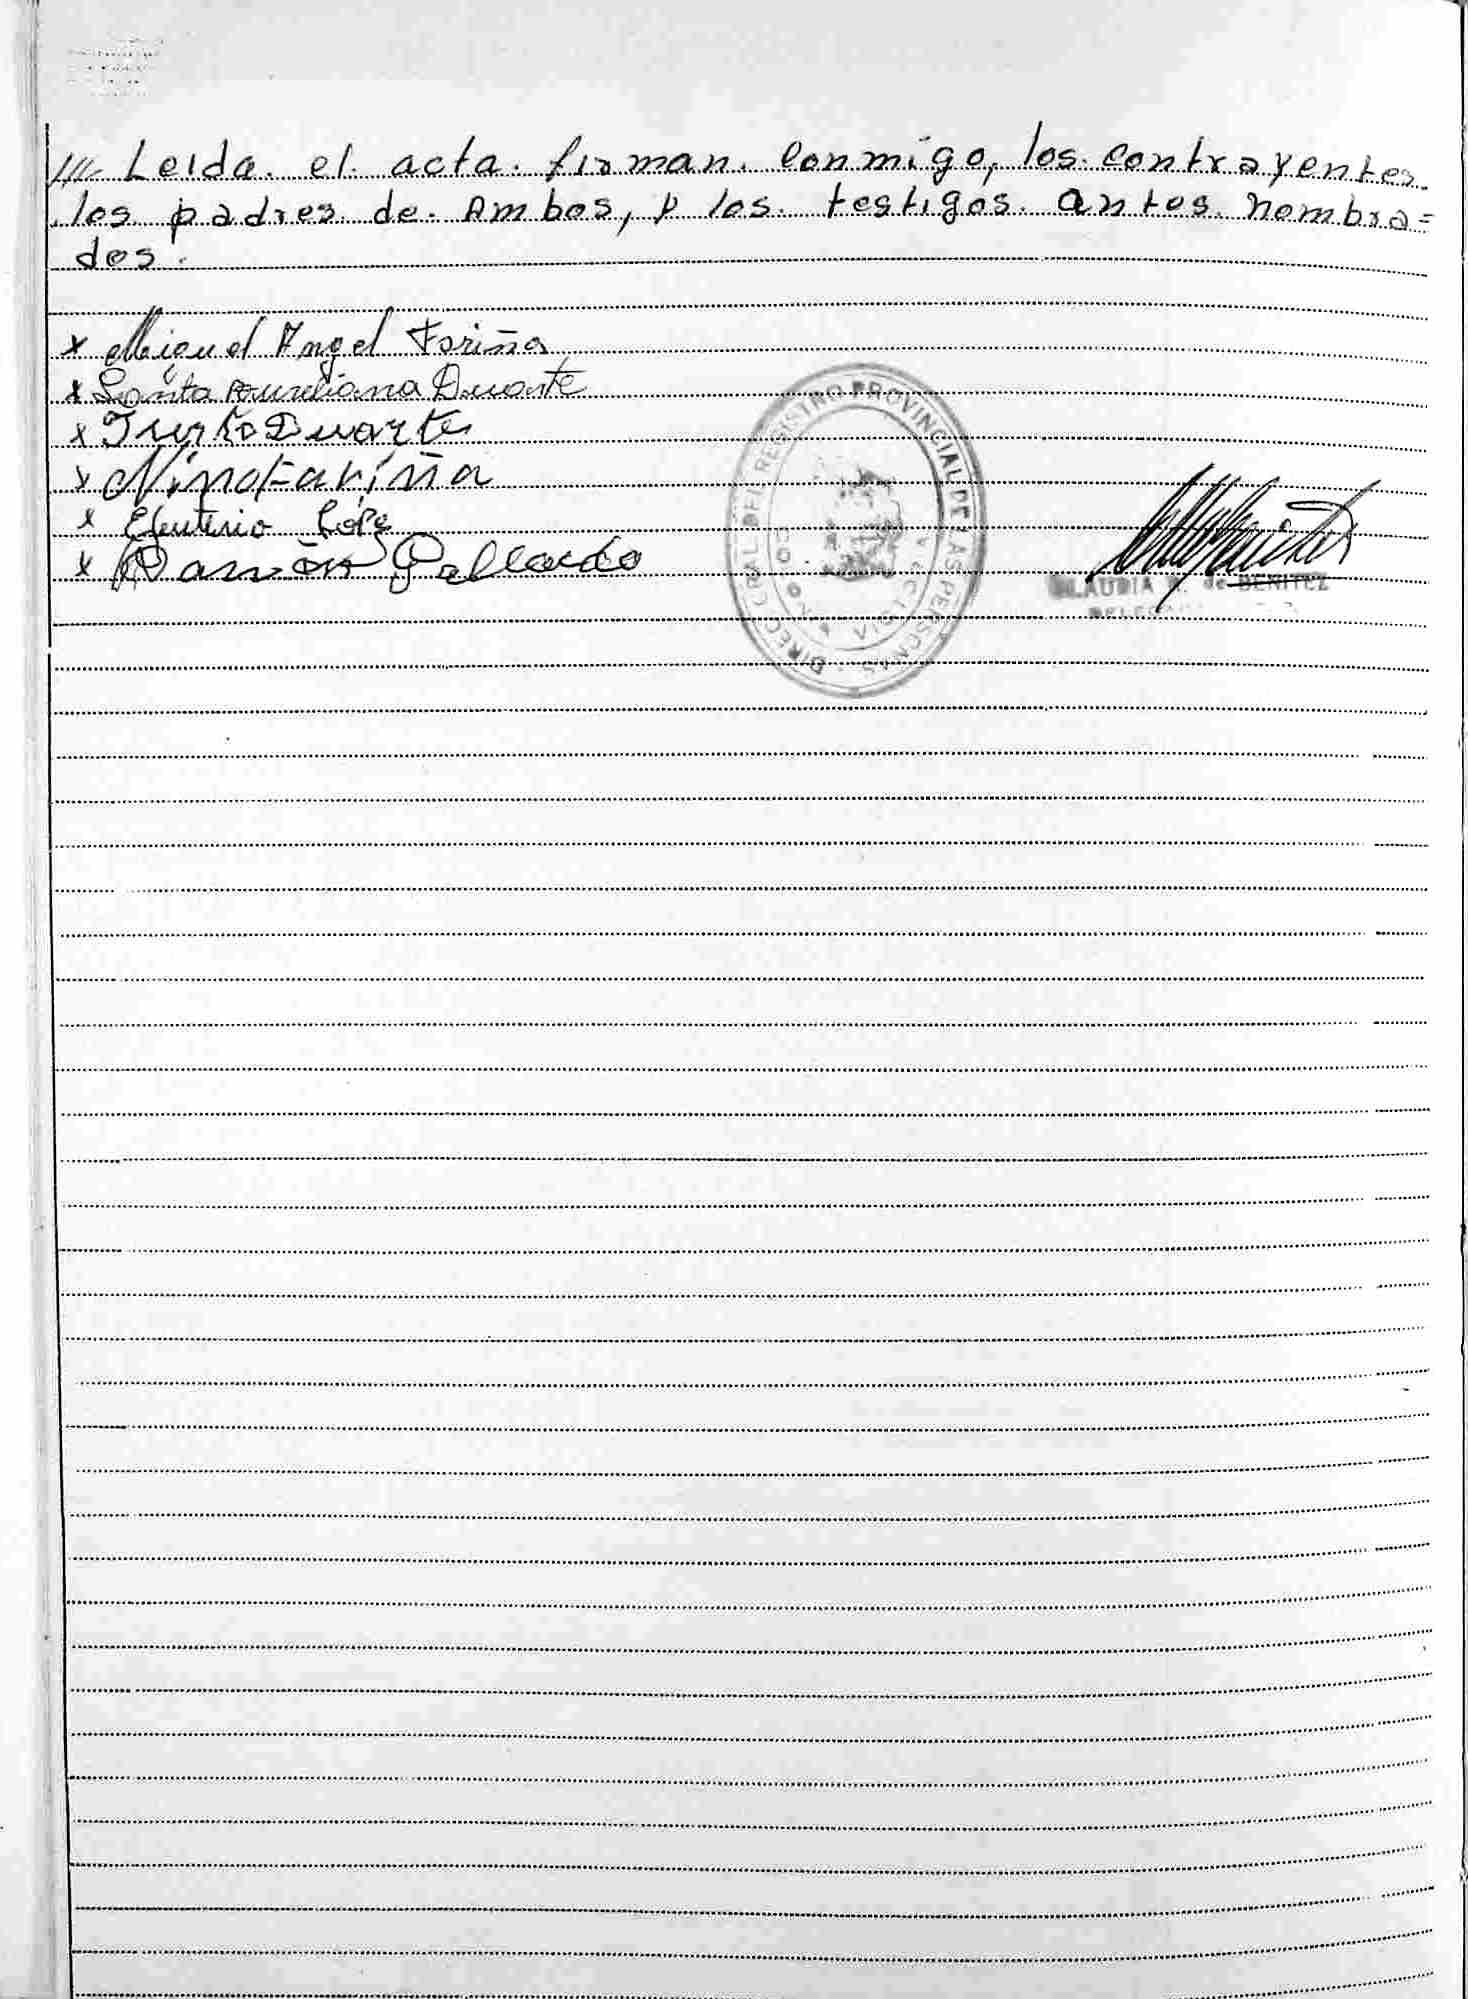 /// Leida. el. acta. firman. Conmigo, los. contrayentes.
los padres de. Ambos, y los. testigos. antes. nombra=
dos.
x Miguel Angel Fariña
x Santa Aureliana Duarte
x Duarte
x Nino Fariña
x Eleuterio López
x Ramón Gallardo
DIREC. GRAL. DEL REGISTRO PROVINCIAL DE LAS PERSONAS
CLAUDIA de BENITEZ